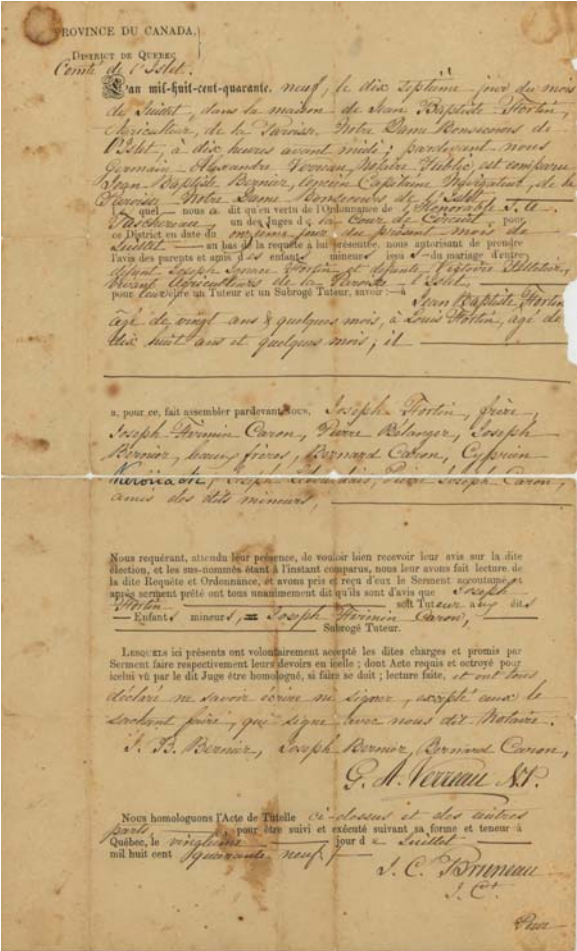 PROVINCE DU CANADA,
DISTRICT DE QUEBEC
Comté de l'Islet.
L'an mil-huit-cent-quarante. neuf, le dix septième jour du mois
de Juillet, dans la maison de Jean Baptiste Fortin,
Agriculteur, de la Paroisse Notre Dame Bonsecours de
l'Islet, à dix heures avant midi; pardevant nous
Germain Alexandre Verreau, Notaire Public, est comparu
Jean Baptiste Bernier, ancien Capitaine Navigateur, de la
Paroisse Notre Dame Bonsecours de l'Islet
le quel — nous a dit qu'en vertu de l'Ordonnance de l'Honorable J. A.
Taschereau un des Juges de la Cour de Circuit pour
ce District en date du onzième jour du présent mois de
Juillet — au bas de la requête à lui présentée, nous autorisant de prendre
l'avis des parents et amis des enfants mineurs issus du mariage d'entre
défunt Joseph Fortin et défunte Victoire
vivant Agriculteurs de la Paroisse l'Islet
pour leur élire un Tuteur et un Subrogé Tuteur, savoir :— à Jean Baptiste Fortin
agé de vingt ans & quelques mois, à Louis Fortin, agé de
dix huit ans et quelques mois; il
a, pour ce, fait assembler pardevant nous, Joseph Fortin, frère,
Joseph Firmin Caron, Pierre Bélanger, Joseph
Bernier, beaux frères, Bernard Caron, Cyprien
Joseph Pierre Joseph Caron,
amis des dits mineurs,
Nous requérant, attendu leur présence, de vouloir bien recevoir leur avis sur la dite
élection, et les sus-nommés étant à l'instant comparus, nous leur avons fait lecture de
la dite Requête et Ordonnance, et avons pris et reçu d'eux le Serment accoutumé et
après serment prêté ont tous unanimement dit qu'ils sont d'avis que Joseph
Fortin soit Tuteur aux dits
Enfants mineurs, Joseph Firmin Caron,
Subrogé Tuteur.
LESQUELS ici présents ont volontairement accepté les dites charges et promis par
Serment faire respectivement leurs devoirs en icelle ; dont Acte requis et octroyé pour
icelui vû par le dit Juge être homologué, si faire se doit ; lecture faite, et ont tous
déclaré ne savoir écrire ni signer, excepté ceux le
sachant faire, qui signe avec nous dit Notaire.
J. B. Bernier, Joseph Bernier, Bernard Caron,
G. A. Verreau N.P.
Nous homologuons l'Acte de Tutelle ci-dessus et des autres
parts pour être suivi et exécuté suivant sa forme et teneur à
Québec, le vingtième jour de Juillet
mil huit cent quarante neuf
J. C. Bruneau
J. Ct.
Pour